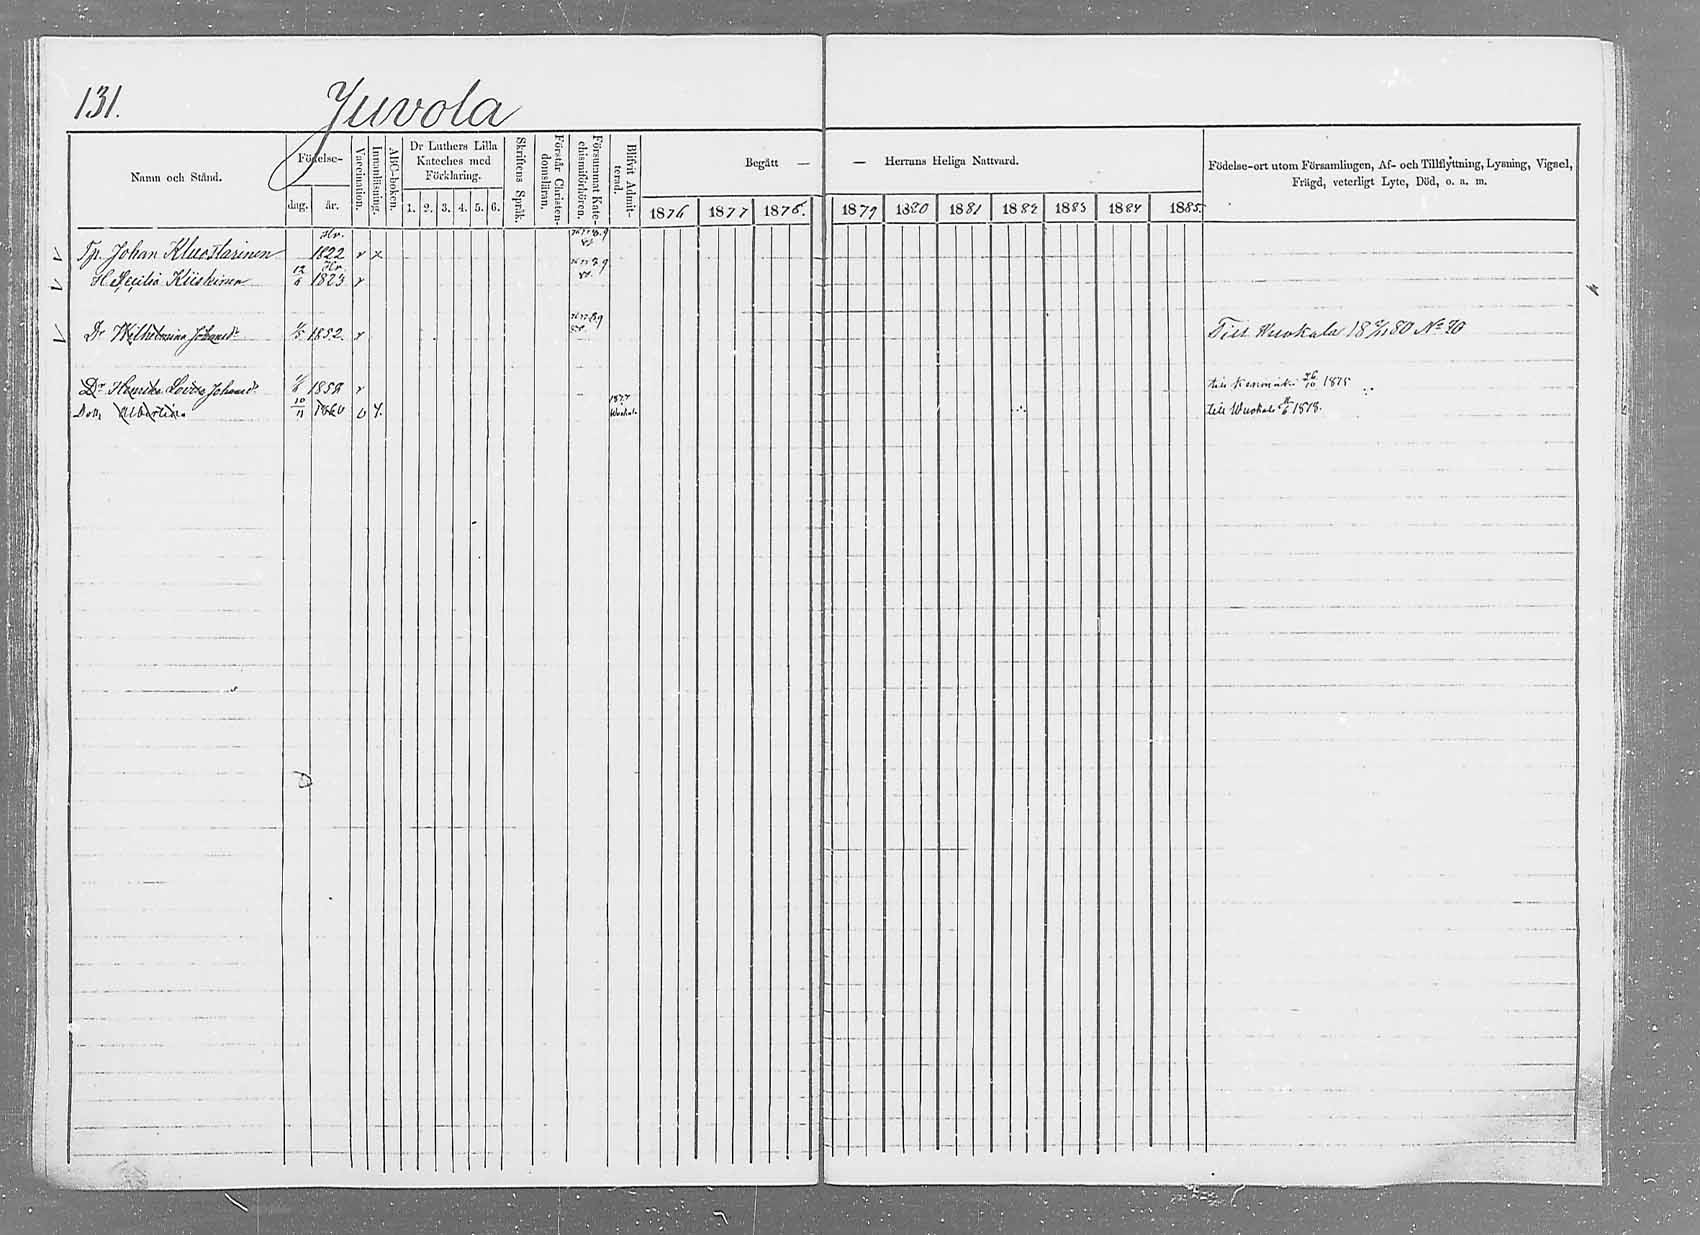 131.
Juvola
Namn och Stånd.
Födelse-
dag.
år.
Vaccination.
Innanläsning.
ABC-boken.
Dr Luthers Lilla
Kateches med
Förklaring.
1. 2. 3. 4. 5. 6.
Skriftens Språk.
Förstår Christen-
domsläran.
Försummat Kate-
chismiförhören.
Blifvit Admit-
terad.
Begått —
— Herrans Heliga Nattvard.
1876 1877 1878. 1879 1880 1881 1882 1883 1884 1885.
Födelse-ort utom Församlingen, Af- och Tillflyttning, Lysning, Vigsel,
Frägd, veterligt Lyte, Död, o. a. m.
Johan 1822 v x
H. Cecilia Kiiskinen 12/6 1823 v
Dr Wilhelmina Johansdr 1852. v Till Wuokala 80 No
Dr Henrika Lovisa Johansdr v till 26/10 1875
Dott. Albertina 10/11 1860 v 1877 Wuokala till Wuokala 1878.